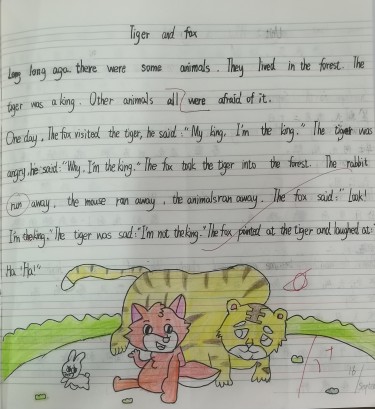 Tiger and fox
Long long aga there were some animals. They lived in the forest. The
tiger was a king. Other animals all were afraid of it.
One day, The fox visited the tiger, he said: "My king. I'm the king." The tiger was
angry, he said: "Why. I'm the king." The fox took the tiger into the forest. The rabbit
run away, the mouse ran away, the animals ran away. The fox said: "Look!
I'm the king." The tiger was sad: "I'm not the king." The fox pointed at the tiger and laughed at:
Ha "Ha!"